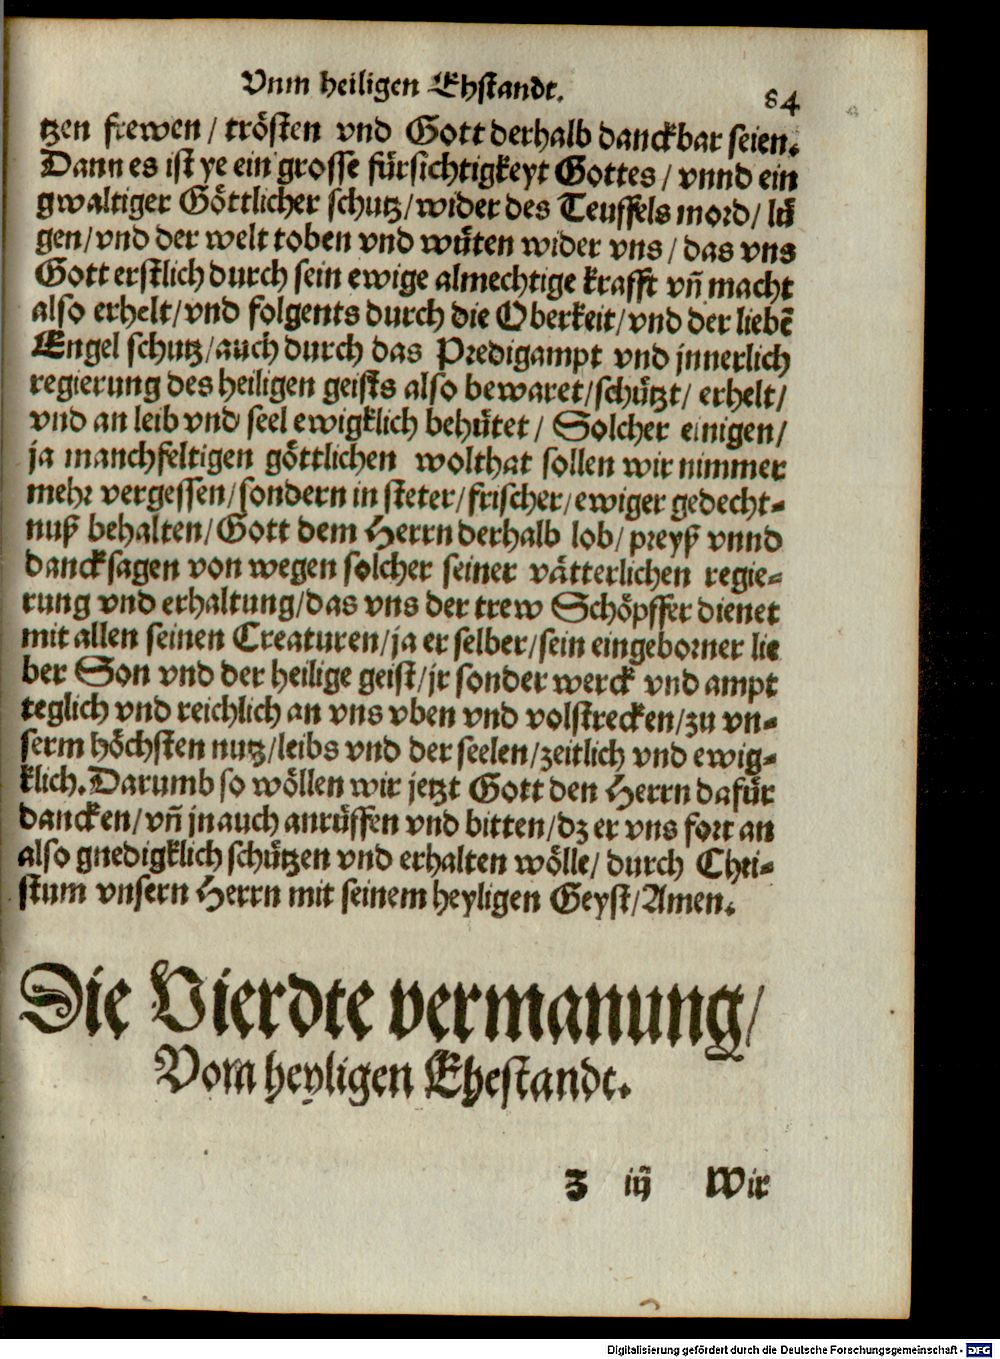 Vnm heiligen Ehstandt.
84
tzen frewen / trösten vnd Gott derhalb danckbar seien.
Dann es ist ye ein grosse fürsichtigkeyt Gottes / vnnd ein
gwaltiger Göttlicher schutz / wider des Teuffels mord / lü
gen / vnd der welt toben vnd wüten wider vns / das vns
Gott erstlich durch sein ewige almechtige krafft vñ macht
also erhelt / vnd folgents durch die Oberkeit / vnd der liebẽ
Engel schutz / auch durch das Predigampt vnd jnnerlich
regierung des heiligen geists also bewaret / schützt / erhelt /
vnd an leib vnd seel ewigklich behütet / Solcher einigen /
ja manchfeltigen göttlichen wolthat sollen wir nimmer
mehr vergessen / sondern in steter / frischer / ewiger gedecht-
nuß behalten / Gott dem Herrn derhalb lob / preyß vnnd
dancksagen von wegen solcher seiner vätterlichen regie-
rung vnd erhaltung / das vns der trew Schöpffer dienet
mit allen seinen Creaturen / ja er selber / sein eingeborner lie
ber Son vnd der heilige geist / jr sonder werck vnd ampt
teglich vnd reichlich an vns vben vnd volstrecken / zu vn-
serm höchsten nutz / leibs vnd der seelen / zeitlich vnd ewig-
klich. Darumb so wöllen wir jetzt Gott den Herrn dafür
dancken / vñ jn auch anrüffen vnd bitten / dz er vns fort an
also gnedigklich schützen vnd erhalten wölle / durch Chri-
stum vnsern Herrn mit seinem heyligen Geyst / Amen.
Die Vierdte vermanung /
Vom heyligen Ehestandt.
Z iij Wir
Digitalisierung gefördert durch die Deutsche Forschungsgemeinschaft - DFG